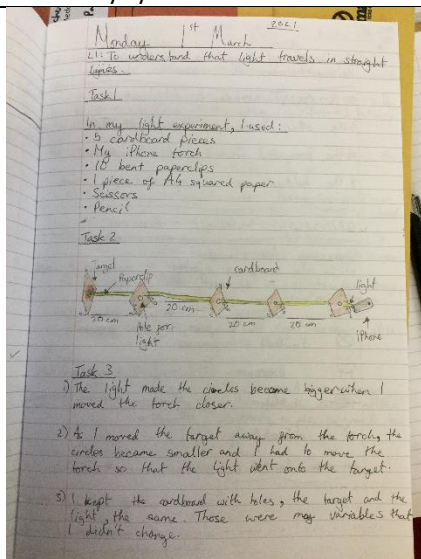 2021
Monday 1st March
LI: To understand that light travels in straight
lines.
Task 1
In my light experiment, I used:
• 5 cardboard pieces
• My iPhone torch
• 10 bent paperclips
• 1 piece of A4 squared paper
• Scissors
• Pencil
Task 2
Target
Paperclip
cardboard
light
20 cm
20 cm
20 cm
hole for
light
iPhone
Task 3
1) The light made the circles become bigger when I
moved the torch closer.
2) As I moved the target away from the torch, the
circles became smaller and I had to move the
torch so that the light went onto the target.
3) I kept the cardboard with holes, the target and the
light, the same. Those were my variables that
I didn't change.